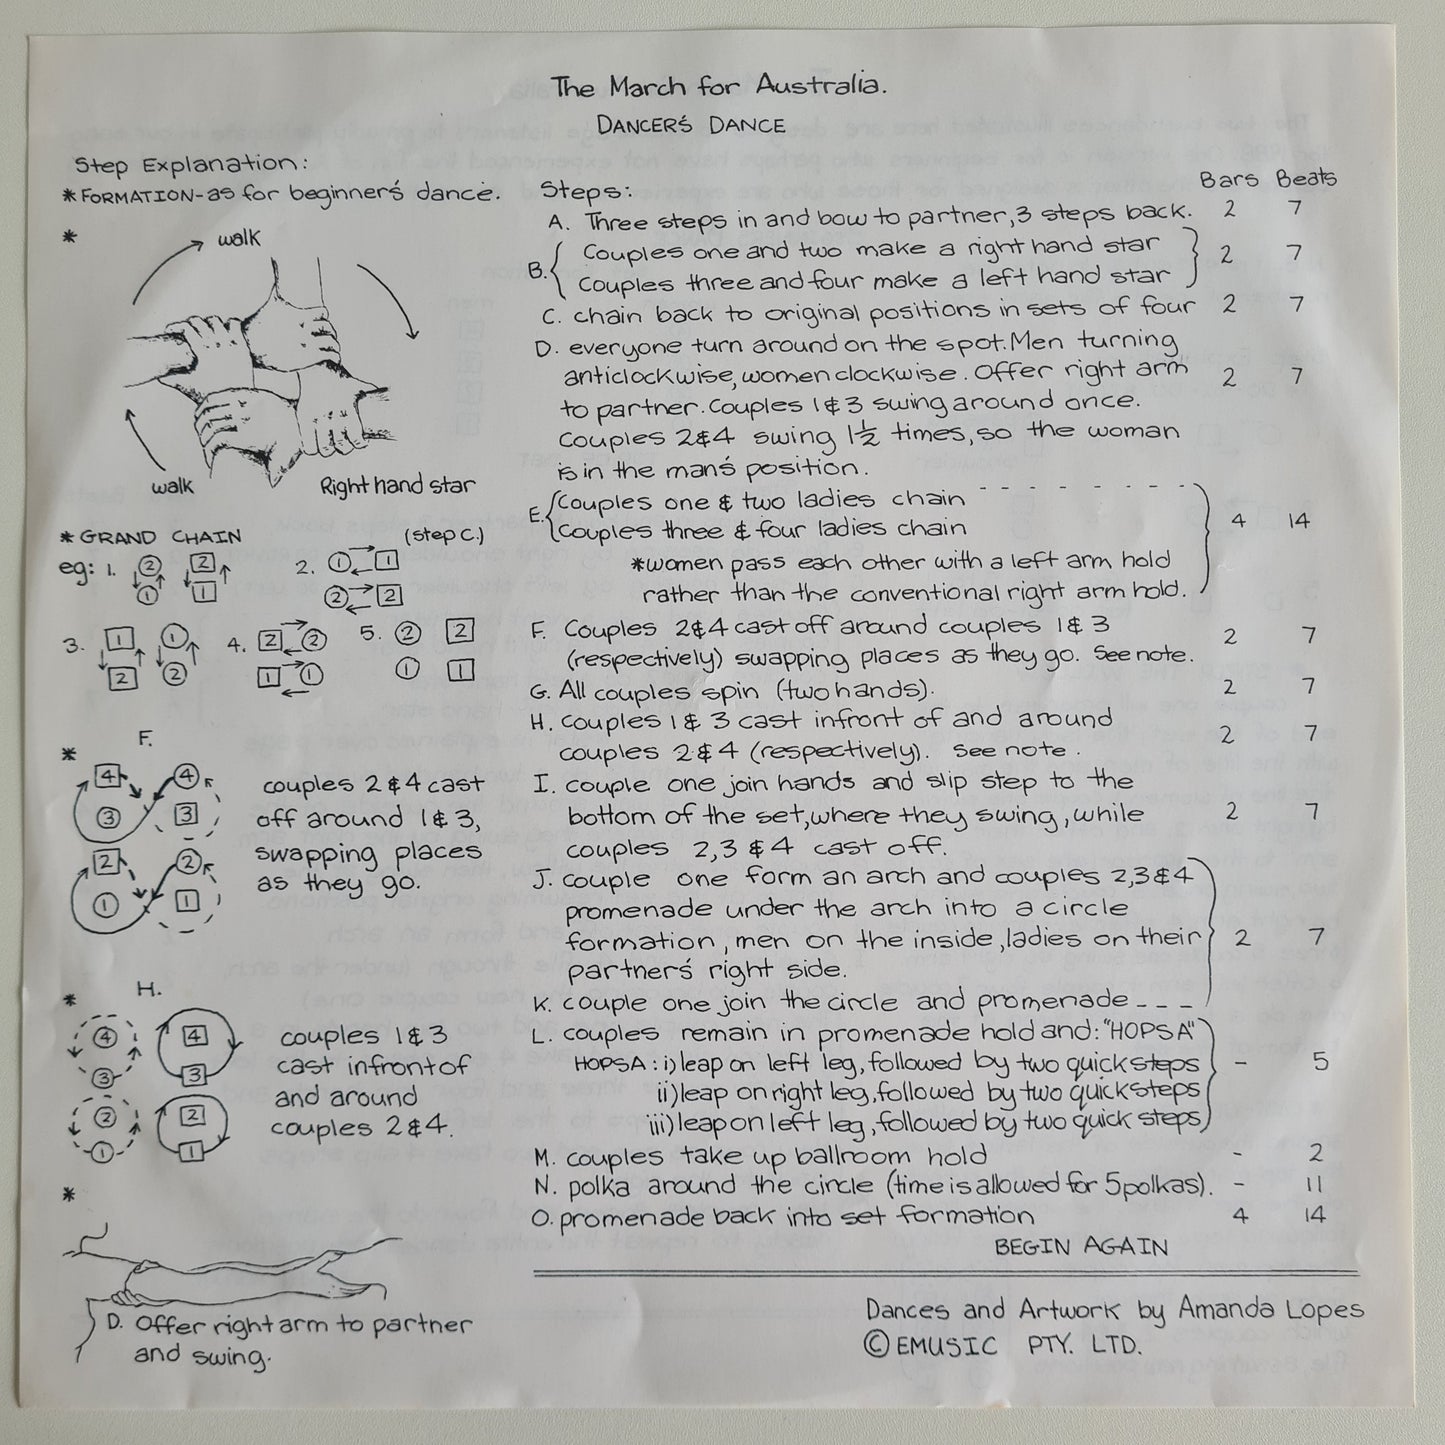 The March for Australia.
DANCER'S DANCE
Step Explanation:
* FORMATION-as for beginner's dance.
*
walk
walk
Right hand star
* GRAND CHAIN (step C.)
eg: 1. 2 2 1 1
2. 1 1 2 2
3. 1 1 2 2
4. 2 2 1 1
5. 2 2 1 1
* F.
4 4
3 3
2 2
1 1
couples 2 & 4 cast
off around 1 & 3,
swapping places
as they go.
* H.
4 4
3 3
2 2
1 1
couples 1 & 3
cast infront of
and around
couples 2 & 4.
*
D. Offer right arm to partner
and swing.
Steps: Bars Beats
A. Three steps in and bow to partner, 3 steps back. 2 7
B. { Couples one and two make a right hand star } 2 7
Couples three and four make a left hand star
C. chain back to original positions in sets of four 2 7
D. everyone turn around on the spot. Men turning
anticlockwise, women clockwise. Offer right arm 2 7
to partner. Couples 1 & 3 swing around once.
Couples 2 & 4 swing 1½ times, so the woman
is in the man's position.
E. { Couples one & two ladies chain - - - - - - - -
Couples three & four ladies chain 4 14
*women pass each other with a left arm hold
rather than the conventional right arm hold.
F. Couples 2 & 4 cast off around couples 1 & 3 2 7
(respectively) swapping places as they go. See note.
G. All couples spin (two hands). 2 7
H. couples 1 & 3 cast infront of and around 2 7
couples 2 & 4 (respectively). See note.
I. couple one join hands and slip step to the
bottom of the set, where they swing, while 2 7
couples 2,3 & 4 cast off.
J. couple one form an arch and couples 2,3 & 4
promenade under the arch into a circle
formation, men on the inside, ladies on their 2 7
partner's right side.
K. couple one join the circle and promenade - - -
L. couples remain in promenade hold and: "HOPSA"
HOPSA: i) leap on left leg, followed by two quick steps - 5
ii) leap on right leg, followed by two quick steps
iii) leap on left leg, followed by two quick steps
M. couples take up ballroom hold - 2
N. polka around the circle (time is allowed for 5 polkas). - 11
O. promenade back into set formation 4 14
BEGIN AGAIN
Dances and Artwork by Amanda Lopes
© EMUSIC PTY. LTD.